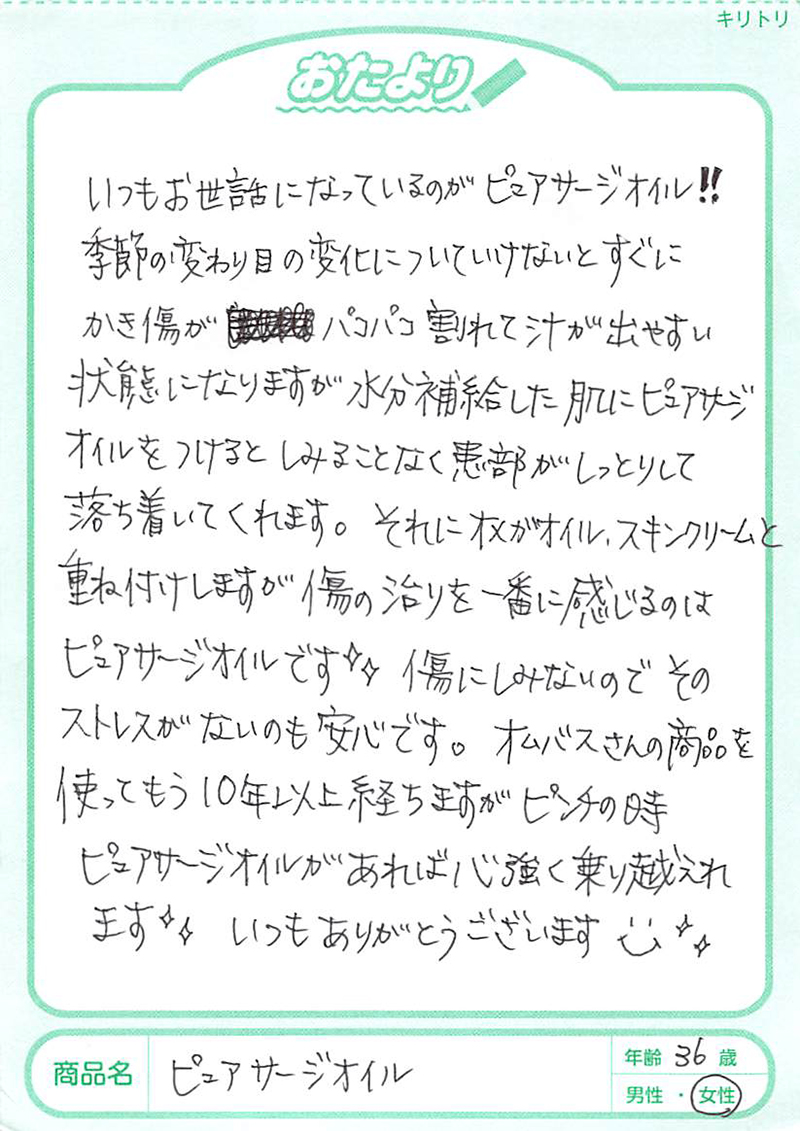 キリトリ
おたより
いつもお世話になっているのがピュアサージオイル!!
季節の変わり目の変化についていけないとすぐに
かき傷が パコパコ割れて汁が出やすい
状態になりますが水分補給した肌にピュアサージ
オイルをつけるとしみることなく患部がしっとりして
落ち着いてくれます。それにオメガオイル、スキンクリームと
重ね付けしますが傷の治りを一番に感じるのは
ピュアサージオイルです 傷にしみないのでその
ストレスがないのも安心です。オムバスさんの商品を
使ってもう10年以上経ちますがピンチの時
ピュアサージオイルがあれば心強く乗り越えれ
ます いつもありがとうございます
商品名 ピュアサージオイル
年齢 36 歳
男性・女性